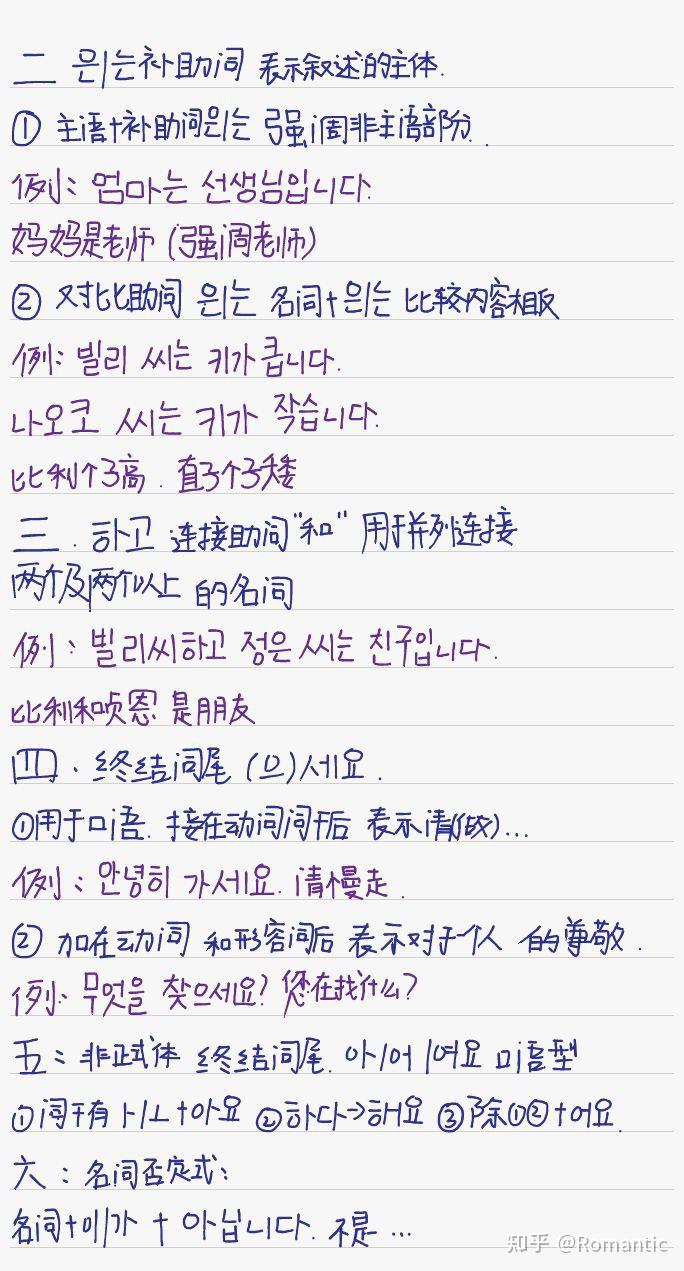 二 은|는补助词 表示叙述的主体.
① 主语+补助词은|는 强调非主语部分.
例: 엄마는 선생님입니다.
妈妈是老师(强调老师)
② 对比助词 은|는 名词+은|는 比较内容相反
例: 빌리 씨는 키가 큽니다.
나오코 씨는 키가 작습니다.
比利个子高. 直子个子矮
三. 하고 连接助词"和" 用于并列连接
两个及两个以上 的名词
例: 빌리씨하고 정은 씨는 친구입니다.
比利和贞恩 是朋友
四、终结词尾 (으)세요.
①用于口语. 接在动词词干后 表示请(做)...
例: 안녕히 가세요. 请慢走.
② 加在动词 和形容词后 表示对于个人 的尊敬.
例. 무엇을 찾으세요? 您在找什么?
五: 非正式体 终结词尾. 아|어|여요 口语型
①词干有ㅏ|ㅗ+아요 ②하다→해요 ③除①②+어요.
六: 名词否定式:
名词+이|가 + 아닙니다. 不是...
知乎 @Romantic